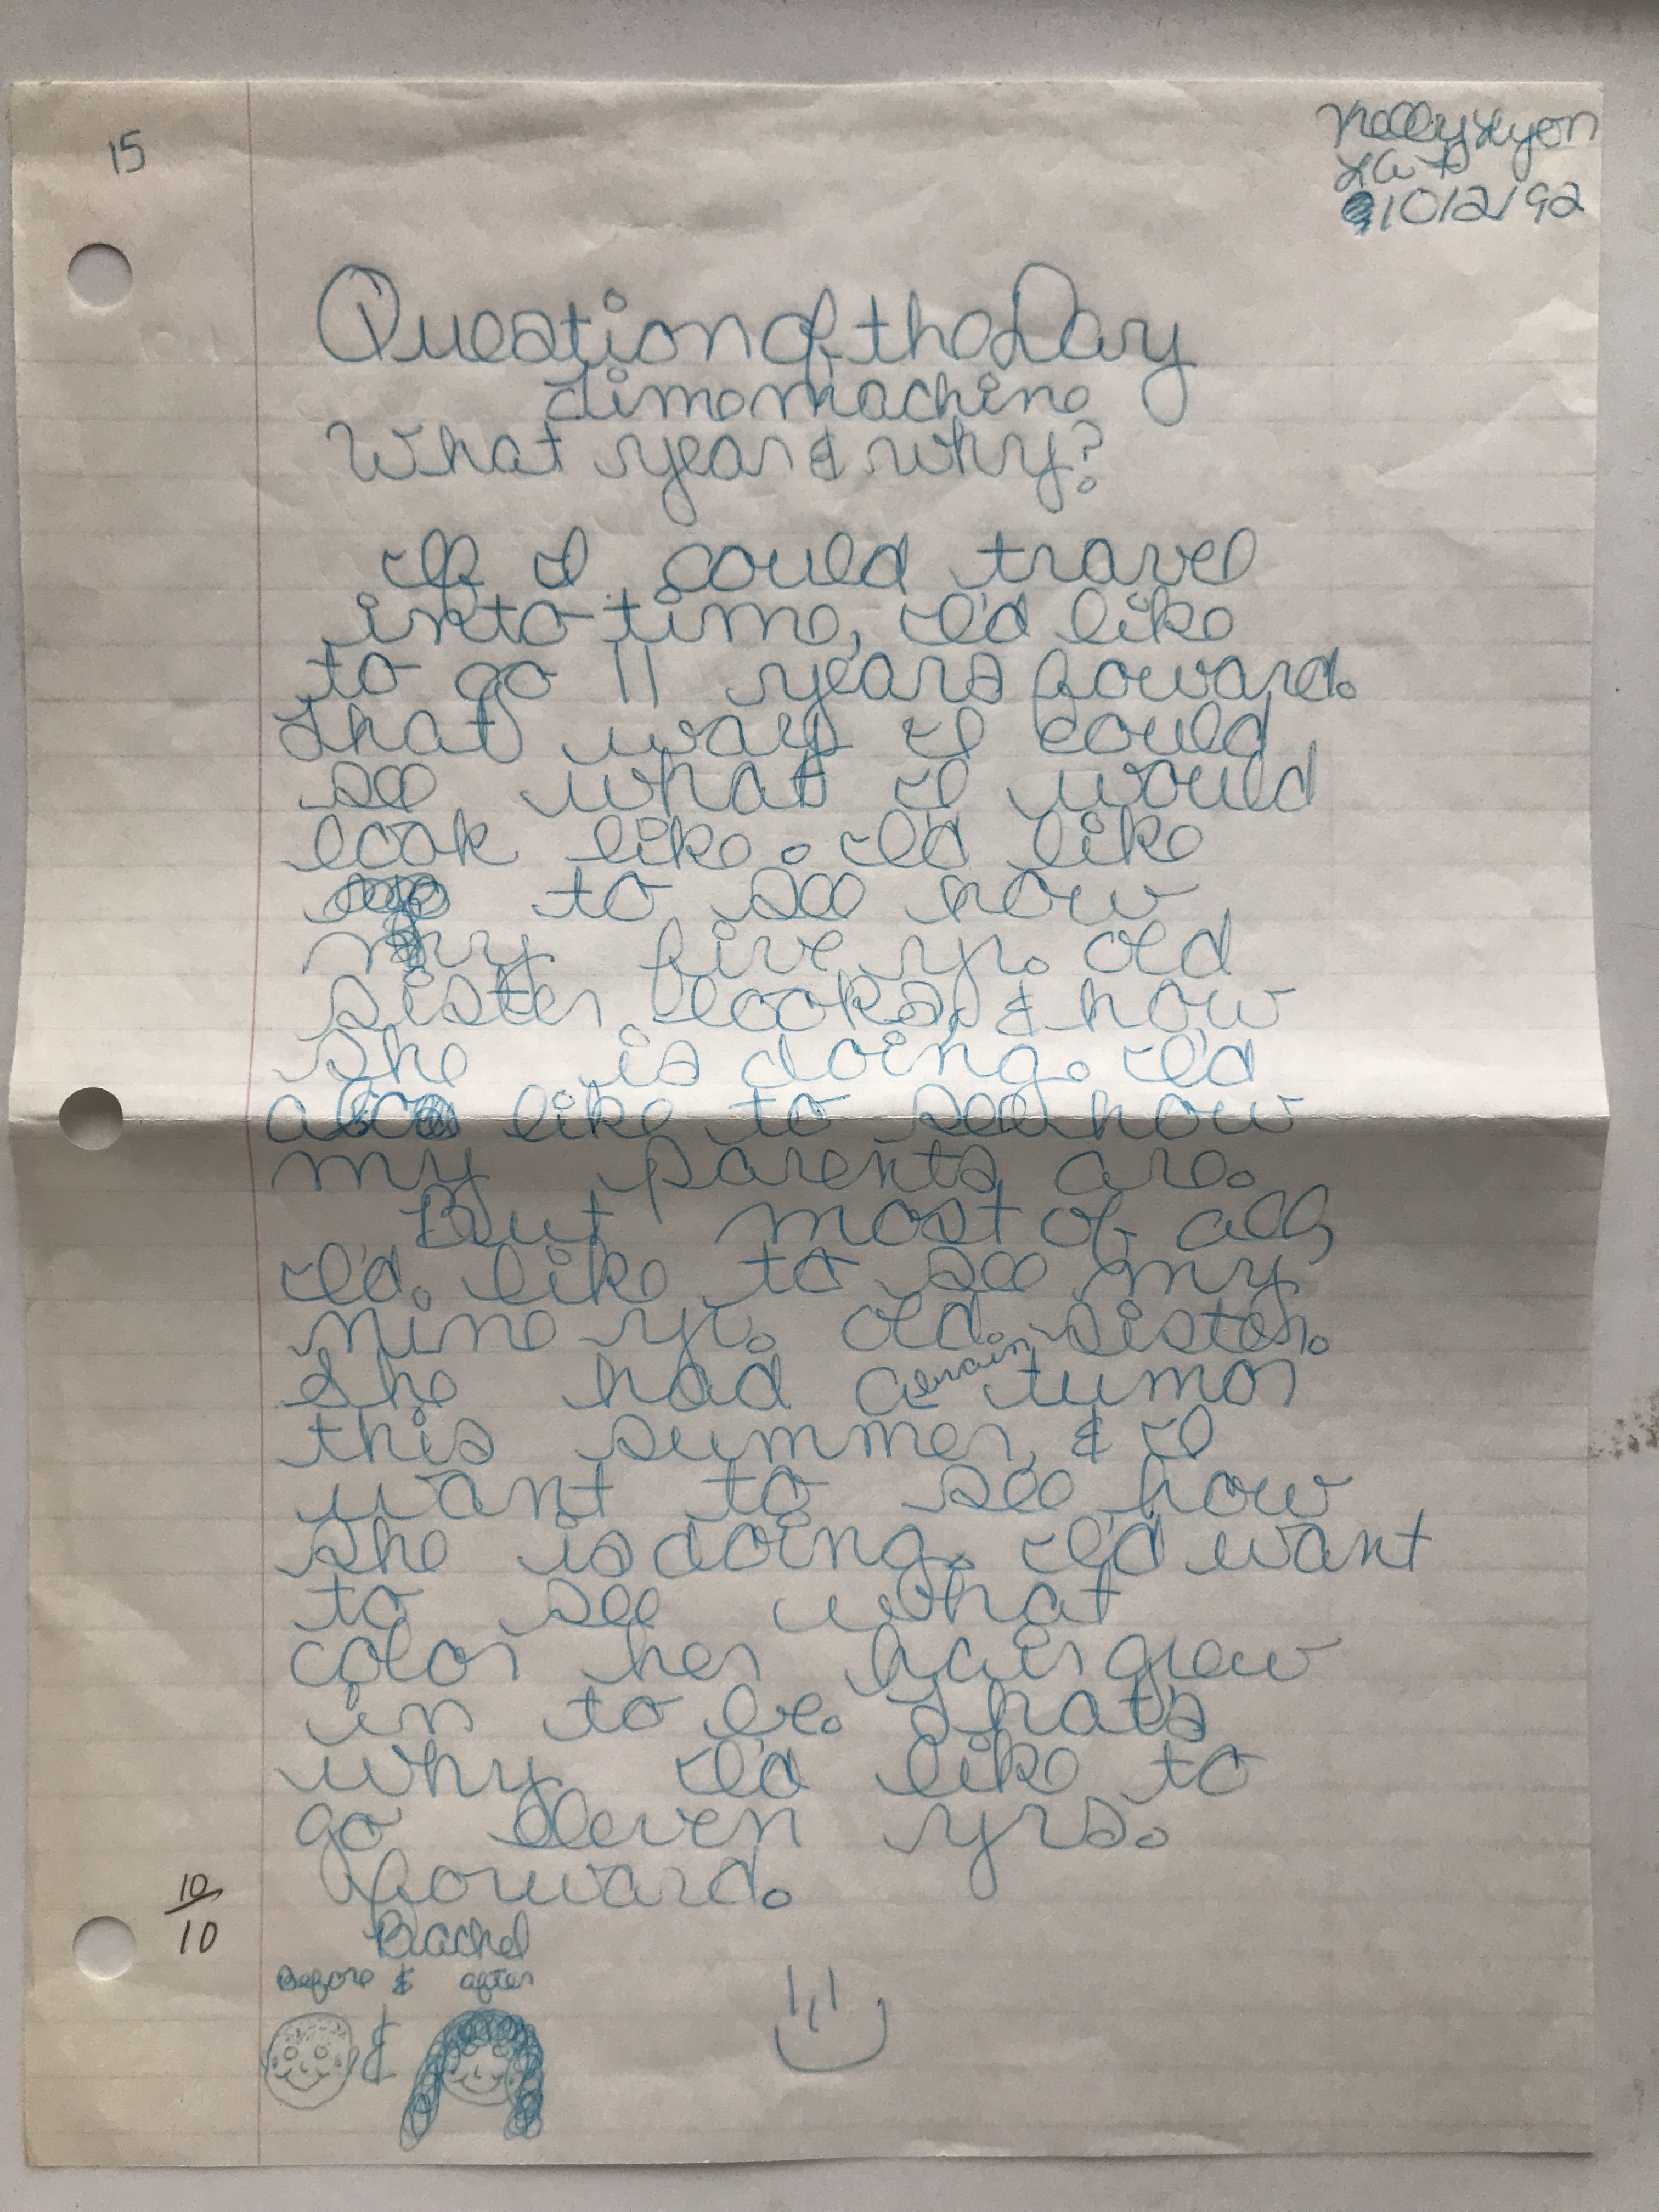 15
Kelly Lyon
LA
10/2/92
Question of the Day
time machine
What year & why?
If I could travel
into time, I'd like
to go 11 years foward.
That way I could
see what I would
look like. I'd like
to see how
my five yr. old
sister looks, & how
she is doing. I'd
also like to see how
my parents are.
But most of all,
I'd like to see my
nine yr. old sister.
She had a brain tumor
this summer, & I
want to see how
she is doing. I'd want
to see what
color her hair grew
in to be. Thats
why I'd like to
go eleven yrs.
forward.
10/10
Rachel
Before & after
&